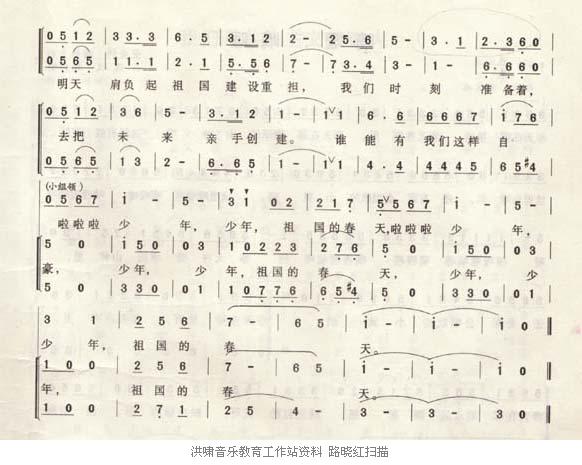 0 5 1 2 | 3 3. 3 | 6. 5 | 3. 1 2 | 1 2 1 2 | 2 - | 2 5. 6 | 5 - | 3. 1 | 2. 3 6 0
0 5 6 5 | 1 1. 1 | 3. 1 | 2. 1 | 5. 5 6 | 7 - | 7 3. 4 | 3 - | 1 - | 6. 6 6 0
明天 肩负起 祖国 建设重担, 我们时刻 准备着,
0 5 1 2 | 3 6 | 5 - | 3. 1 2 | 1 - | 1 ∨ 1 | 6. 6 | 6 6 6 7 | 1 7 6
去把 未来 亲手创建。 谁能有我们这样自
0 5 6 5 | 1 3 | 2 - | 6. 6 5 | 1 - | 1 ∨ 1 | 4. 4 | 4 4 4 5 | 6 5 #4
(小组领)
0 5 6 7 | i - | 5 - | 3 1 | 0 2 | 2 1 7 | 5 ∨ 5 6 7 | i - | 5 -
啦啦啦 少 年, 少年, 祖国的春天,啦啦啦 少 年,
5 0 | i 5 0 | 0 3 | 1 0 2 2 3 | 2 7 6 | 5 0 | i 5 0 | 0 3
豪, 少年, 少 年,祖国的 春 天, 少年, 少
5 0 | 3 3 0 | 0 1 | 1 0 7 7 6 | 6 5 #4 | 5 0 | 3 3 0 | 0 1
3 1 | 2 5 6 | 7 - | - 6 5 | i - | i - | i 0
少 年, 祖国的 春 天。
1 0 0 | 2 5 6 | 7 - | - 6 5 | i - | i - | i 0 0
年, 祖国的 春 天。
1 0 0 | 2 7 1 | 2 5 | 2 5 4 | 3 - | 3 - | 3 0 0
洪啸音乐教育工作站资料 路晓红扫描